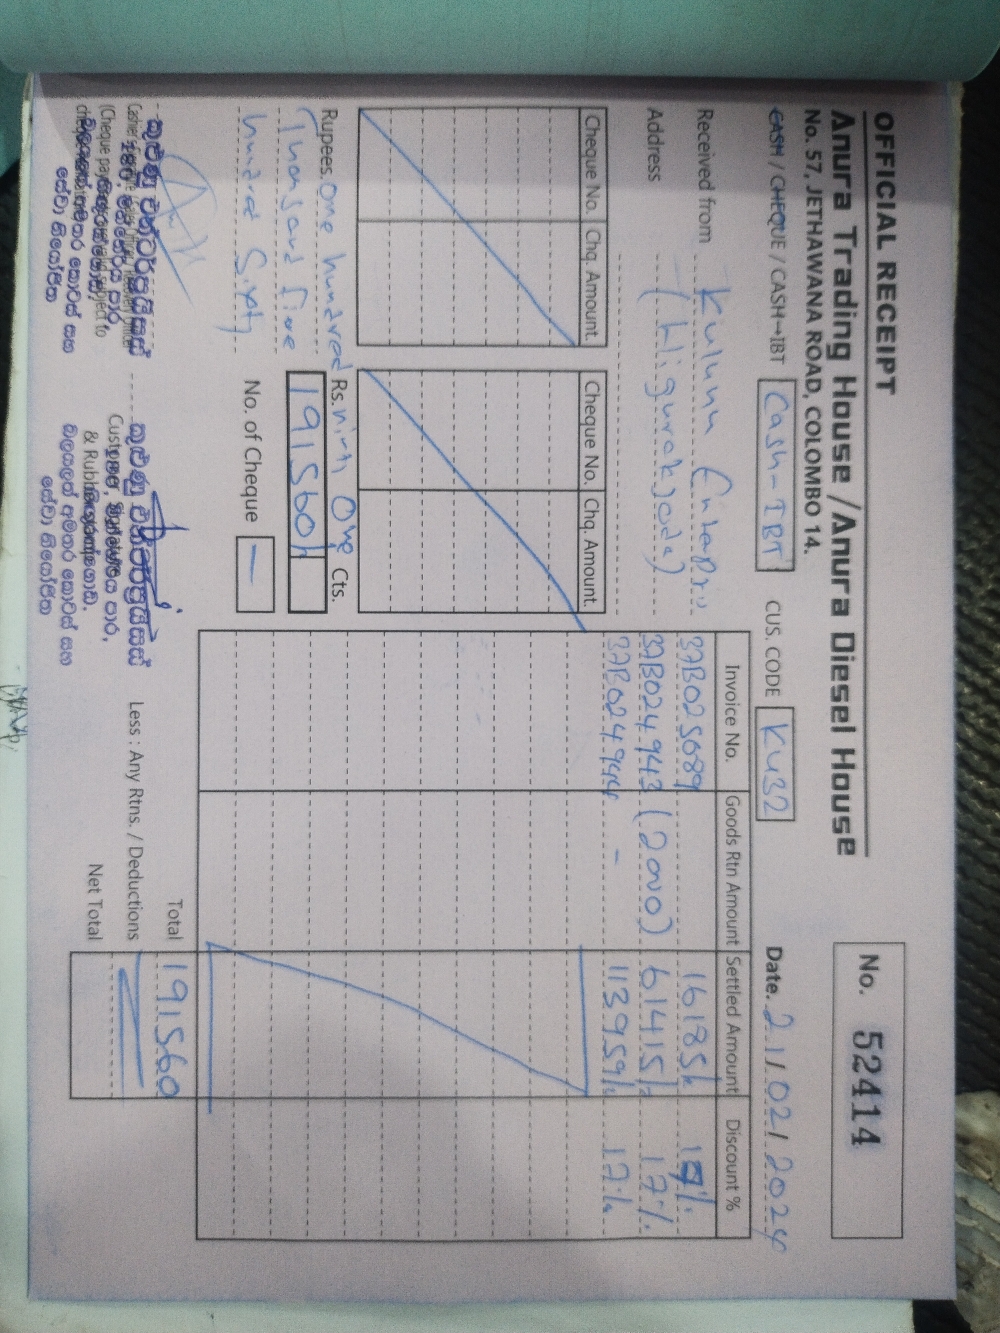 OFFICIAL RECEIPT
Anura Trading House / Anura Diesel House
No. 57, JETHAWANA ROAD, COLOMBO 14.
No. 52414
CASH / CHEQUE / CASH→IBT Cash - IBT CUS. CODE KU32 Date. 21/02/2024
Received from Kulunu Enterpris
Address (Higurakgoda)
Cheque No. Chq. Amount Cheque No. Chq. Amount
Invoice No. Goods Rtn Amount Settled Amount Discount %
37B025689 16185/=
37B024943 (2000) 61415/= 17%
37B024944 - 113959/= 17%
Rupees. One hundred ninty One
Thousand five
hundred Sixty
Rs. 191560/= Cts.
No. of Cheque —
Total 191560
Less : Any Rtns. / Deductions
Net Total
(Cheque
Customer
& Rubber